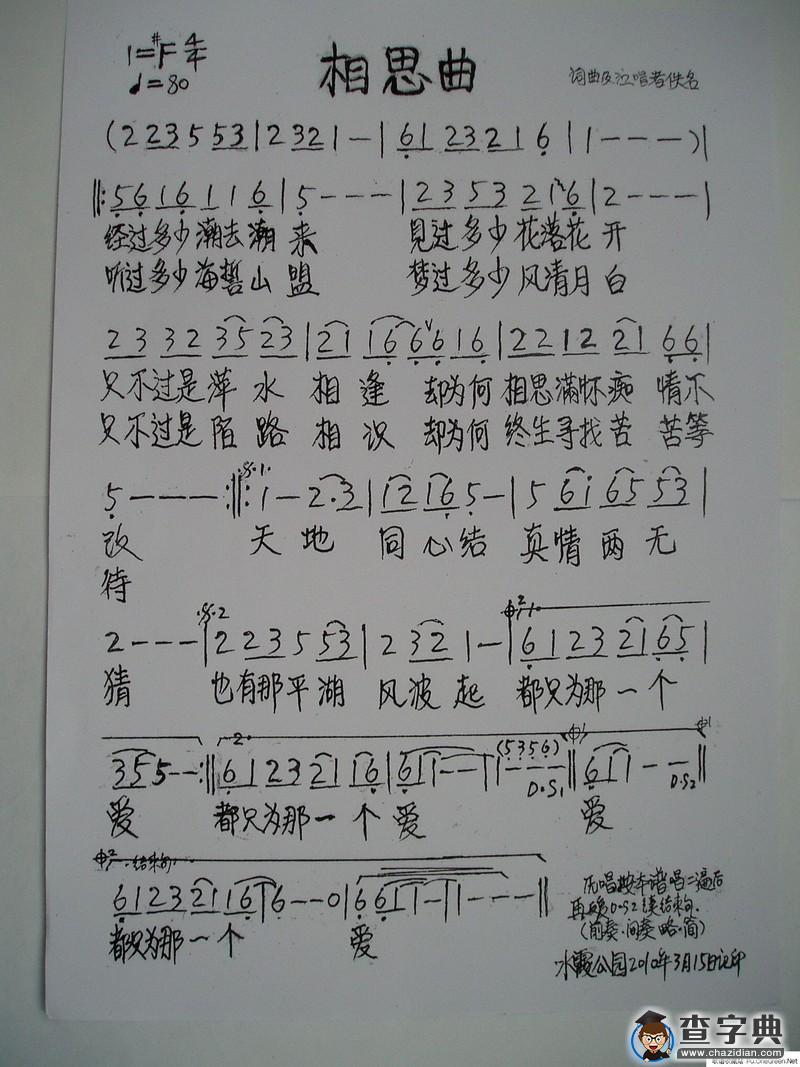 1=#F 4/4
♩=80
相思曲
词曲及泣唱者佚名
(2 2 2 3 5 5 3 | 2 3 2 1 — | 6 1 2 3 2 1 6 | 1 - - - ) |
5 6 1 6 1 1 6 | 5 - - - | 2 3 5 3 2 1 6 | 2 - - - |
经过多少潮去潮来 见过多少花落花开
听过多少海誓山盟 梦过多少风清月白
2 3 3 2 3 5 2 3 | 2 1 1 6 6 6 1 6 | 2 2 1 2 2 1 6 6 |
只不过是萍水相逢 却为何相思满怀痴情不
只不过是陌路相识 却为何终生寻找苦苦等
5 - - - :||: 1 - 2·3 | 1 2 1 6 5 - | 5 6 1 6 5 5 3 |
改 天地同心结 真情两无
待
2 - - - | 2 2 3 5 5 3 | 2 3 2 1 - | 6 1 2 3 2 1 6 5 |
猜 也有那平湖风波起 都只为那一个
3 5 5 - - :|| 6 1 2 3 2 1 1 6 | 6 1 1 - - | 1 - - - (5 3 5 6) D.S1 || 6 1 1 - - D.S2 ||
爱 都只为那一个爱 爱
结束句
6 1 2 3 2 1 1 6 6 - - 0 | 6 6 1 1 - | 1 - - - ||
都只为那一个 爱
再D.S2 结束句.
(前奏·间奏略·简)
水霞公园2010年3月15日记印
查字典
www.chazidian.com